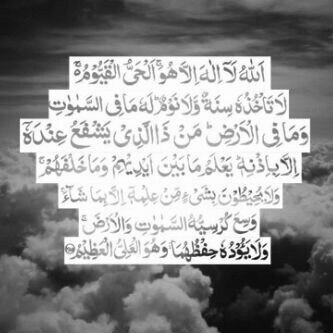 اَللّٰهُ لَآ اِلٰهَ اِلَّا هُوَ ۚ اَلْحَيُّ الْقَيُّوْمُ ۚ
لَا تَاْخُذُهٗ سِنَةٌ وَّلَا نَوْمٌ ؕ لَهٗ مَا فِى السَّمٰوٰتِ
وَمَا فِى الْاَرْضِ ؕ مَنْ ذَا الَّذِىْ يَشْفَعُ عِنْدَهٗۤ
اِلَّا بِاِذْنِهٖ ؕ يَعْلَمُ مَا بَيْنَ اَيْدِيْهِمْ وَمَا خَلْفَهُمْ ۚ
وَلَا يُحِيْطُوْنَ بِشَىْءٍ مِّنْ عِلْمِهٖۤ اِلَّا بِمَا شَآءَ ۚ
وَسِعَ كُرْسِيُّهُ السَّمٰوٰتِ وَالْاَرْضَ ۚ
وَلَا يَـُٔوْدُهٗ حِفْظُهُمَا ۚ وَهُوَ الْعَلِىُّ الْعَظِيْمُ ﴿٢٥٥﴾